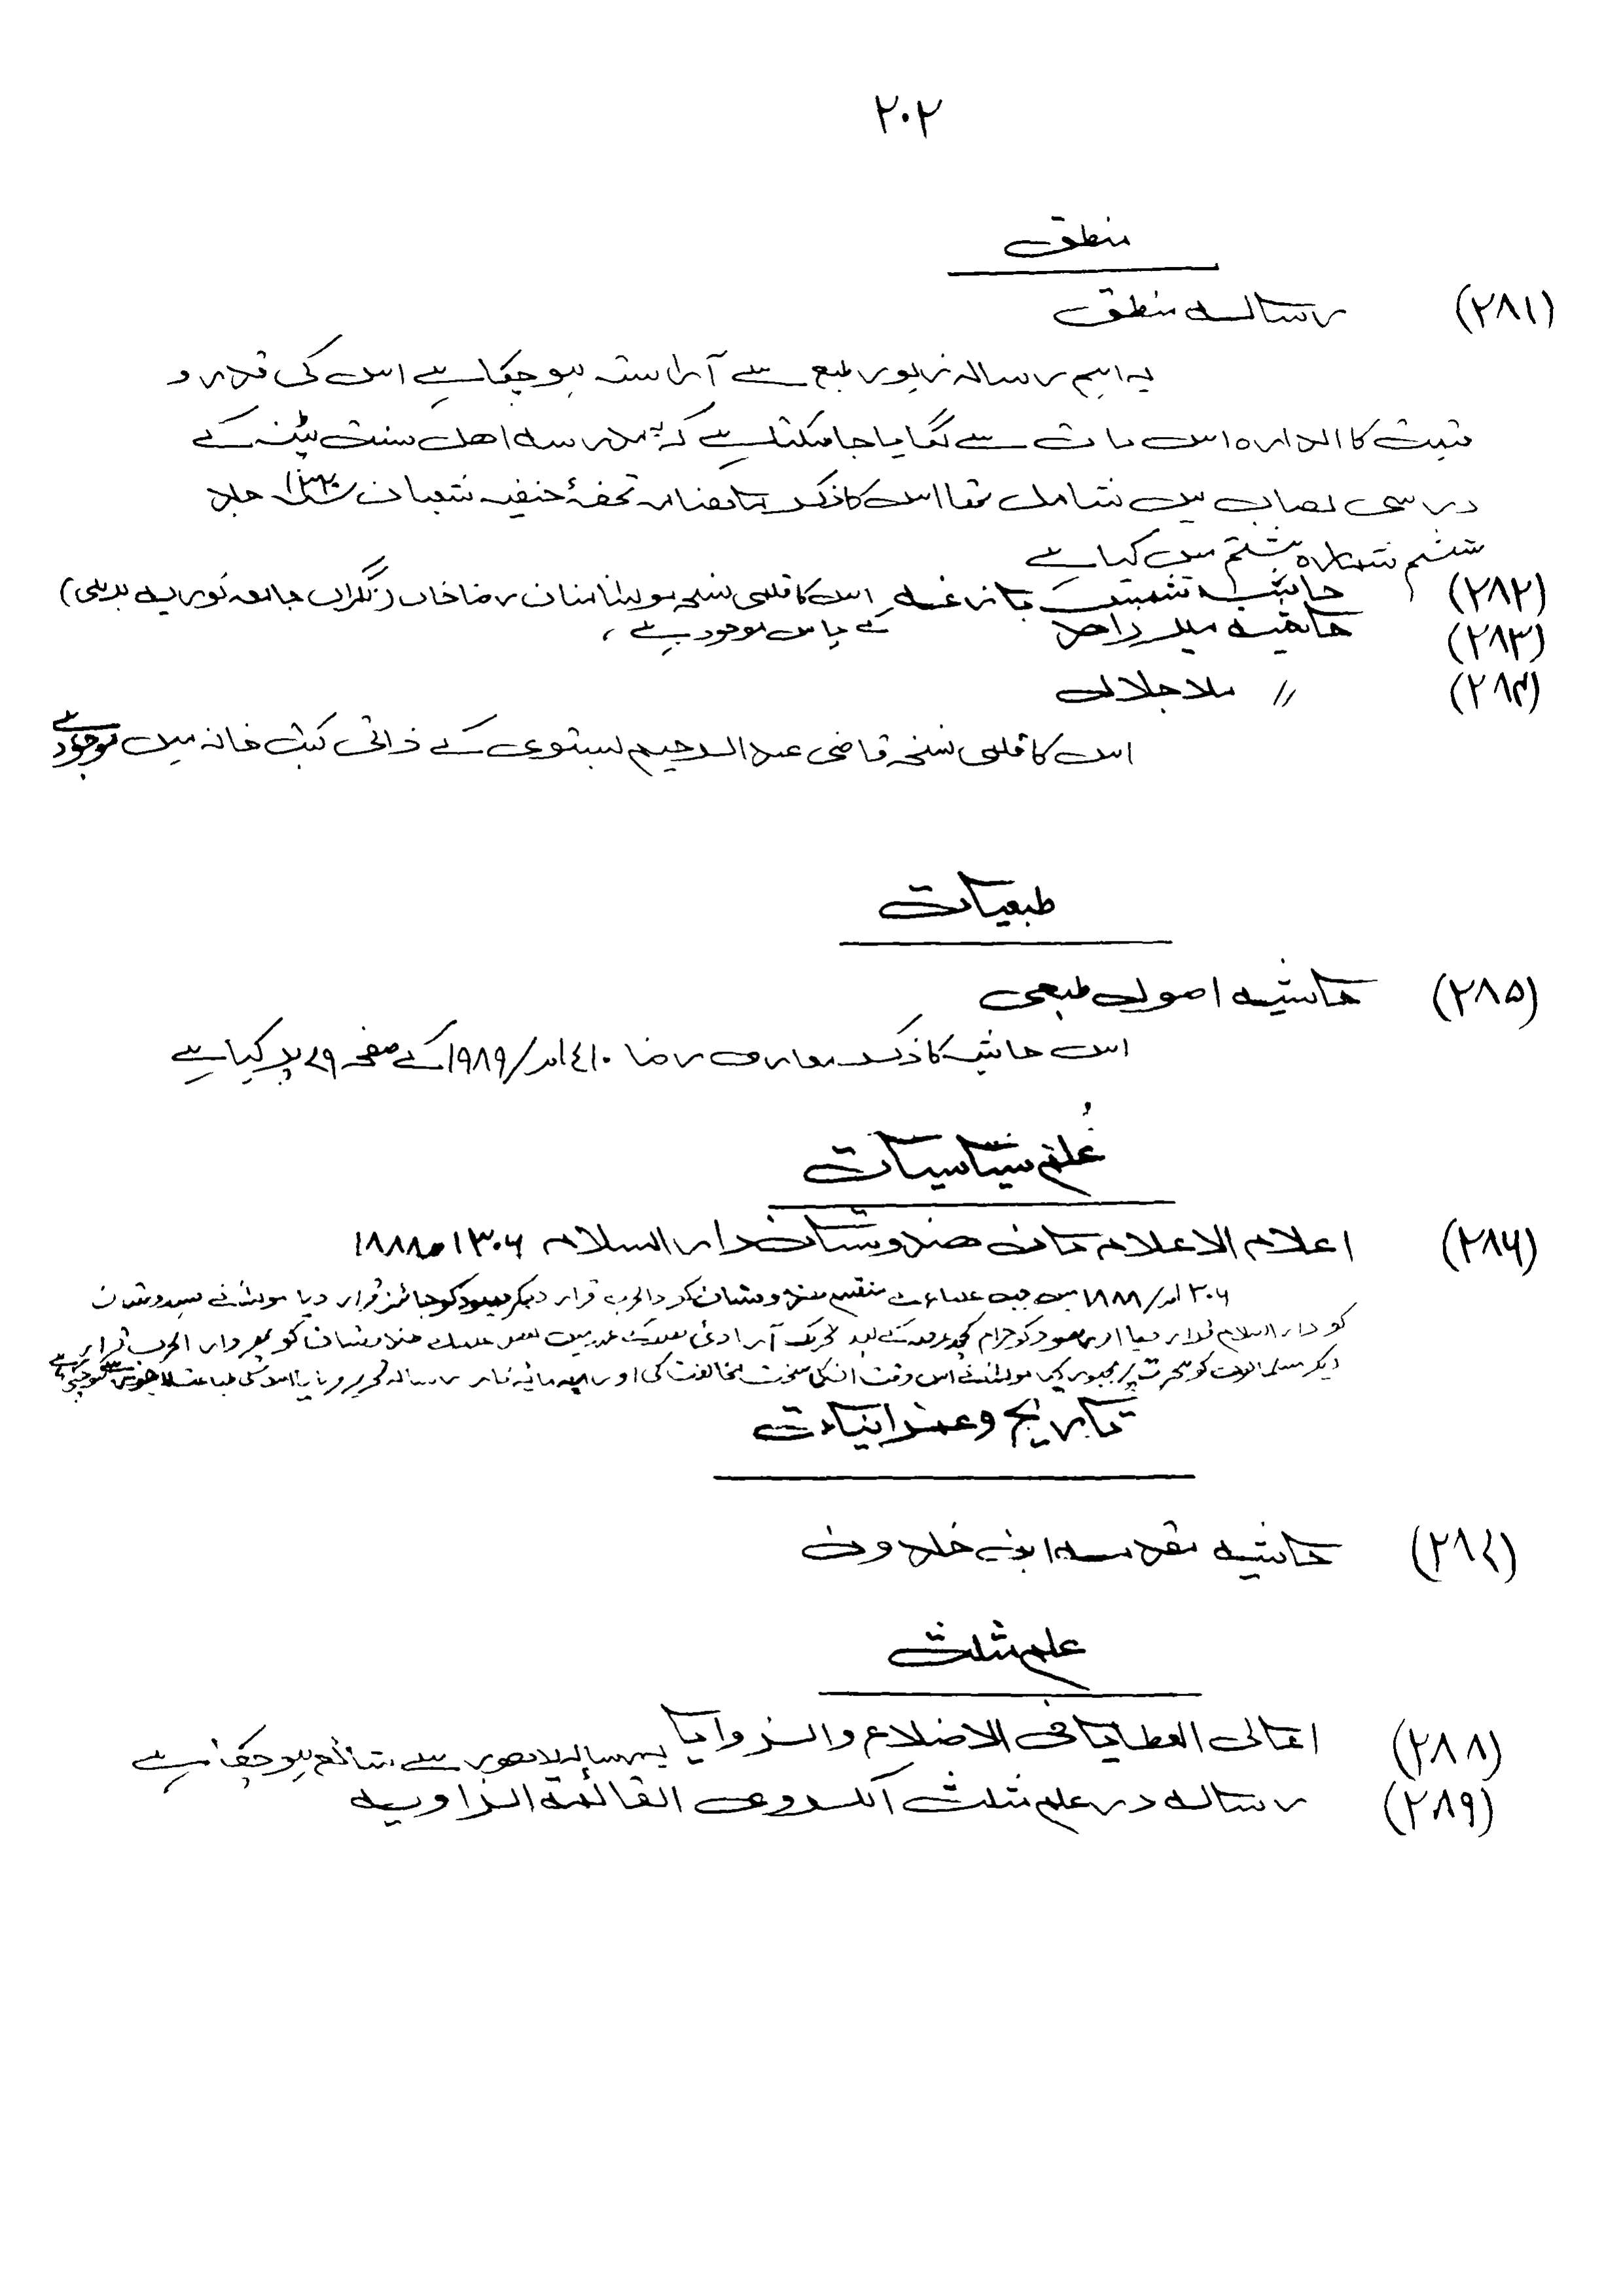 ۲۰۲
منطق
(۲۸۱) رسالہ منطق
یہ اہم رسالہ زیور طبع سے آراستہ ہو چکا ہے اس کی قدر و
قیمت کا اندازہ اس بات سے لگایا جا سکتا ہے کہ یہ مدرسہ اھل سنت پٹنہ کے
درسی نصاب میں شامل تھا اس کا ذکر ماھنامہ تحفۂ حنفیہ شعبان جلد
ششم شمارہ ہشتم میں کیا ہے
(۲۸۲) حاشیہ شمس بازغہ اس کا قلمی نسخہ مولینا منان رضا خاں (نگراں جامعہ نوریہ بریلی)
کے پاس موجود ہے،
(۲۸۳) حاشیہ میر زاھد
(۲۸۴) // ملا جلال
اس کا قلمی نسخہ قاضی عبدالرحیم بستوی کے ذاتی کتب خانہ میں موجود ہے
طبعیات
(۲۸۵) حاشیہ اصول طبعی
اس حاشیہ کا ذکر معارف رضا ۱٤۱۰ھ/۱۹۸۹ کے صفحہ ۷۹ پر کیا ہے
علم سیاسیات
(۲۸۶) اعلام الاعلام بان ھندوستان دار السلام ۱۳۰۶ھ ۱۸۸۸
۱۳۰۶ھ/۱۸۸۸ میں جب علماء نے ھندوستان کو دالحرب قرار دیکر سود کو جائز قرار دیا مولینا نے ہندوستان
کو دار السلام قرار دیا اور سود کو حرام کچھ عرصہ کے بعد تحریک آزادی کے دور میں بعض علماء نے ھندوستان کو پھر دار الحرب قرار
دیکر مسلمانوں کو ہجرت پر مجبور کیا مولینا نے اس وقت انکی سخت مخالفت کی اور رسالہ تحریر فرمایا اسکی طباعت لاھور سے ہو چکی ہے
تاریخ و عمرانیات
(۲۸۷) حاشیہ مقدمہ ابن خلدون
علم مثلث
(۲۸۸) اعالی العطایا فی الاضلاع والزوایا یہ رسالہ لاھور سے شائع ہو چکا ہے
(۲۸۹) رسالہ در علم مثلث الکروی القائمۃ الزاویہ